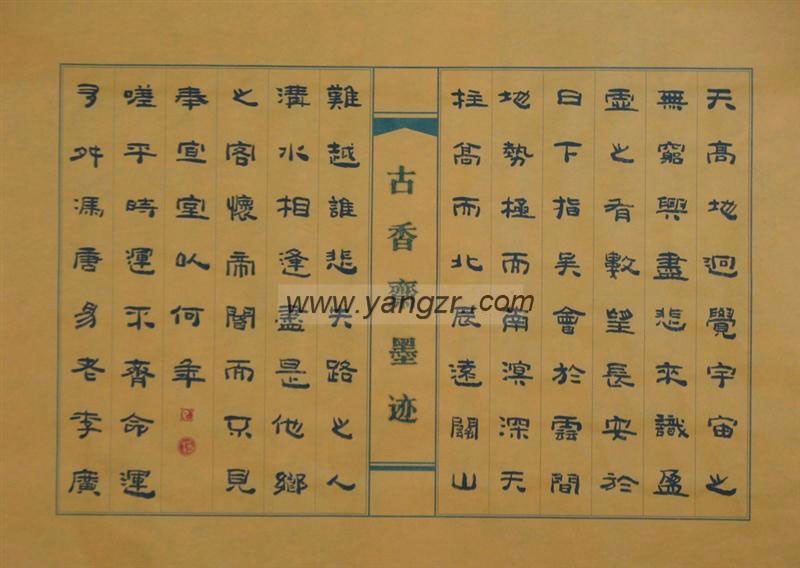 天高地迥覺宇宙之
無窮興盡悲來識盈
虛之有數望長安於
日下指吳會於雲間
地勢極而南溟深天
柱高而北辰遠關山
古香齋墨迹
難越誰悲失路之人
溝水相逢盡是他鄉
之客懷帝閽而不見
奉宣室以何年
嗟乎時運不齊命運
多舛馮唐易老李廣
www.yangzr.com